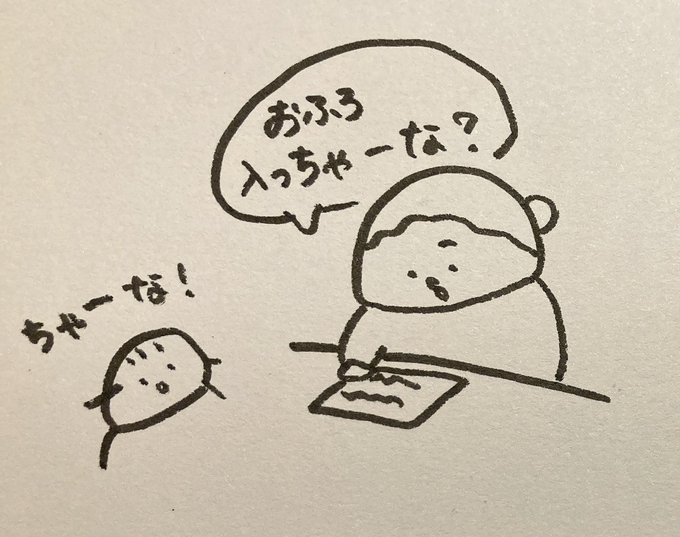 おふろ
入っちゃーな?
ちゃーな!